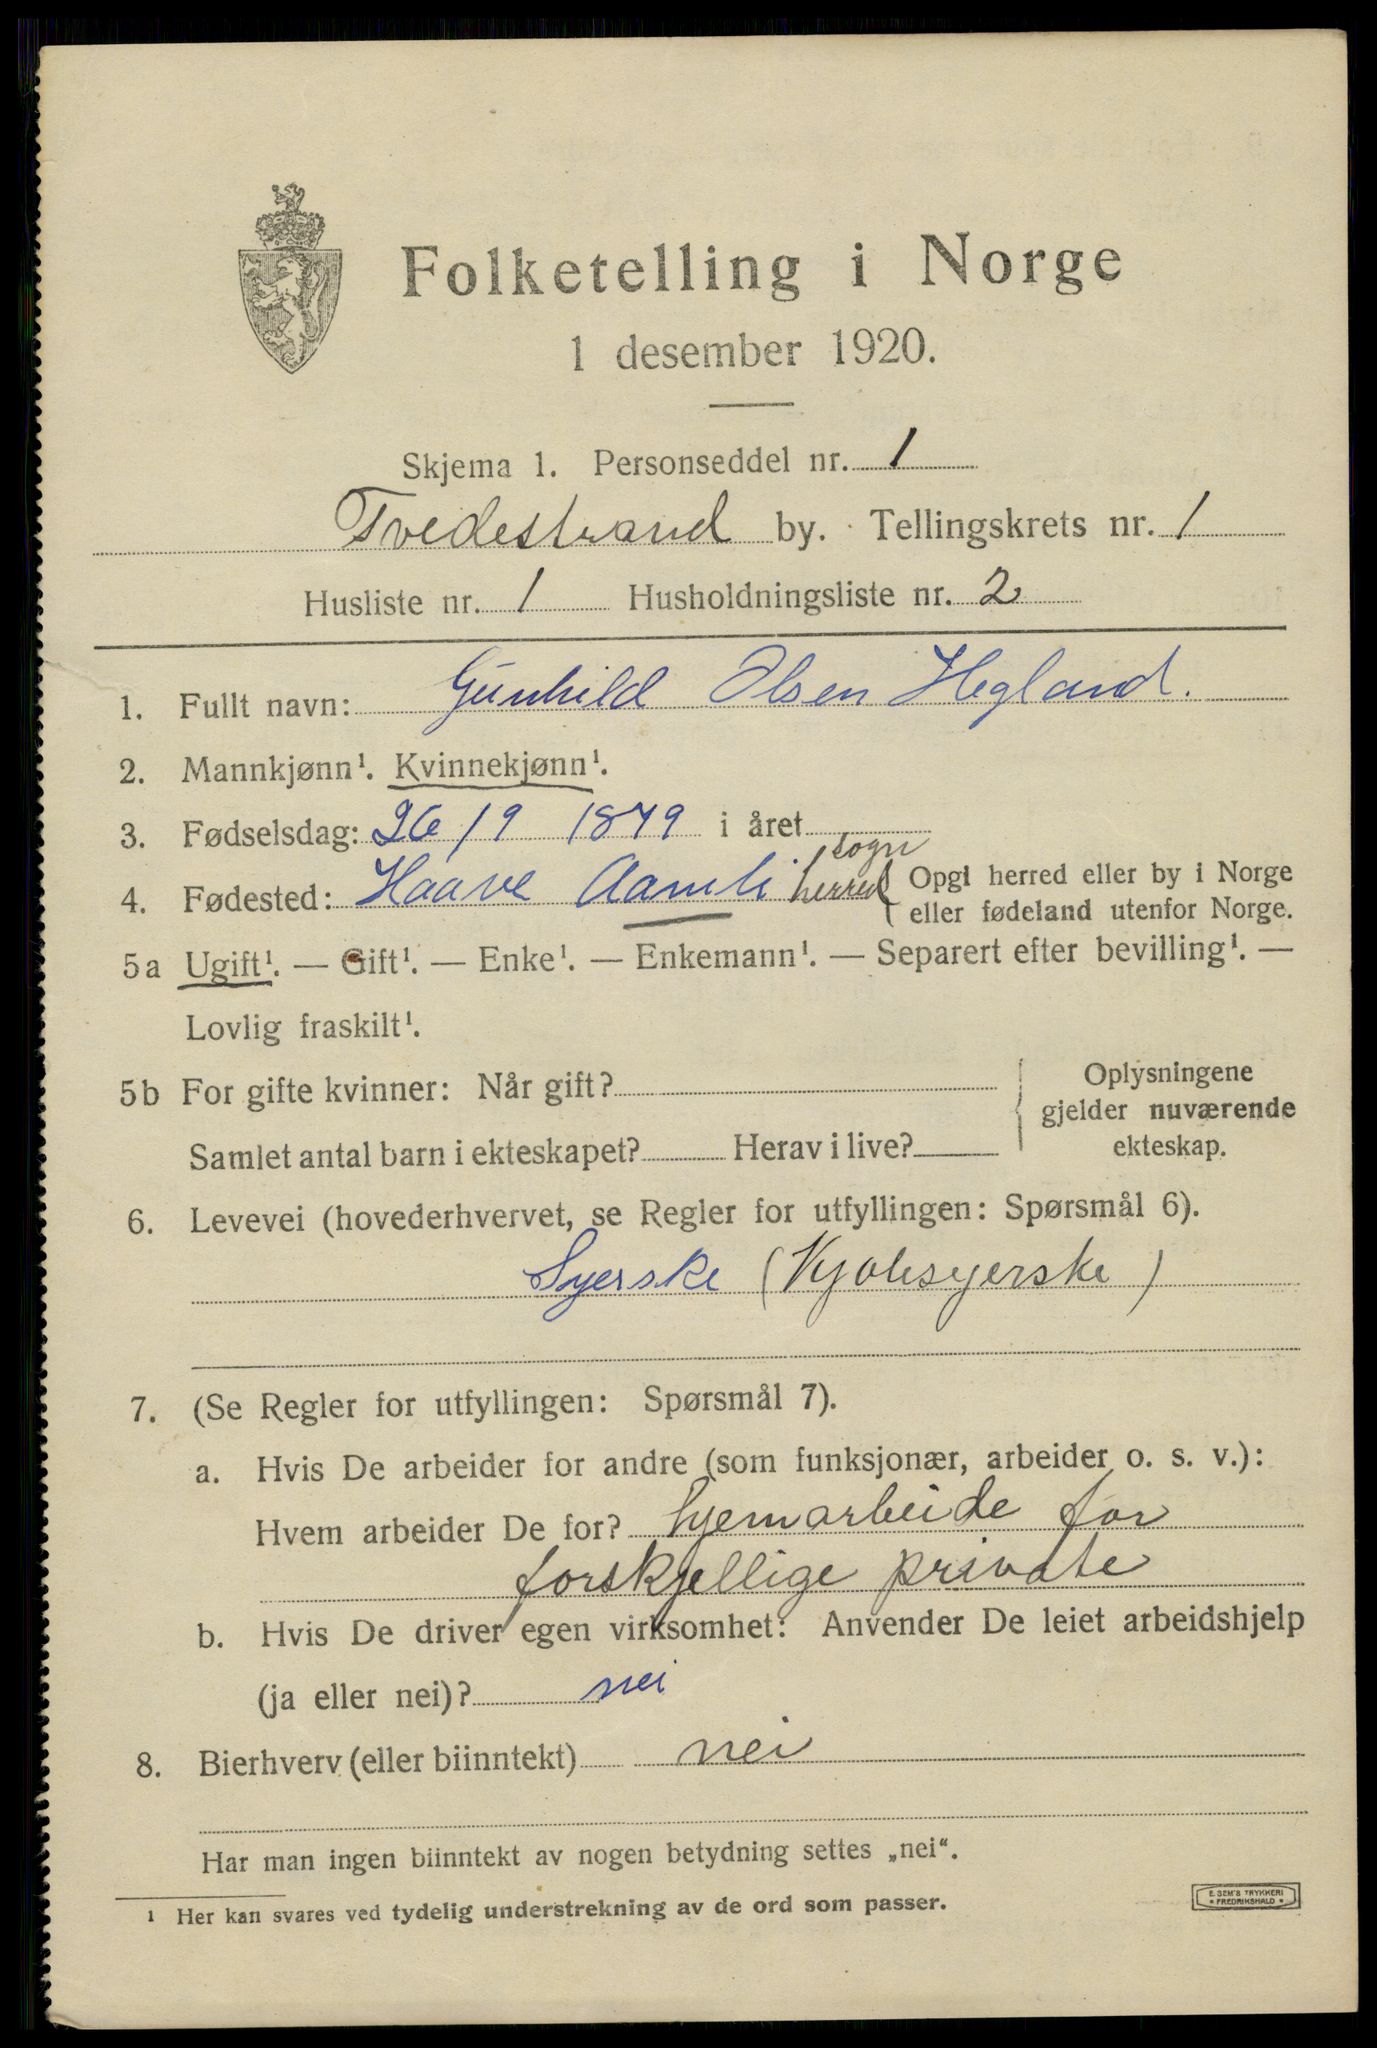 Folketelling i Norge
1 desember 1920.
Skjema 1. Personseddel nr. 1
Tvedestrand by. Tellingskrets nr. 1
Husliste nr. 1 Husholdningsliste nr. 2
1. Fullt navn: Gunhild Olsen Hegland.
2. Mannkjønn¹. Kvinnekjønn¹.
3. Fødselsdag: 26/9 1879 i året
sogn
4. Fødested: Haave Aamli herred { Opgi herred eller by i Norge
eller fødeland utenfor Norge.
5a Ugift¹. — Gift¹. — Enke¹. — Enkemann¹. — Separert efter bevilling¹. —
Lovlig fraskilt¹.
5b For gifte kvinner: Når gift?
Samlet antal barn i ekteskapet? Herav i live?
Oplysningene
gjelder nuværende
ekteskap.
6. Levevei (hovederhvervet, se Regler for utfyllingen: Spørsmål 6).
Syerske (Kjolesyerske)
7. (Se Regler for utfyllingen: Spørsmål 7).
a. Hvis De arbeider for andre (som funksjonær, arbeider o. s. v.):
Hvem arbeider De for? hjemarbeide for
forskjellige private
b. Hvis De driver egen virksomhet: Anvender De leiet arbeidshjelp
(ja eller nei)? nei
8. Bierhverv (eller biinntekt) nei
Har man ingen biinntekt av nogen betydning settes „nei“.
1 Her kan svares ved tydelig understrekning av de ord som passer.
E. SEM'S TRYKKERI
* FREDRIKSHALD *